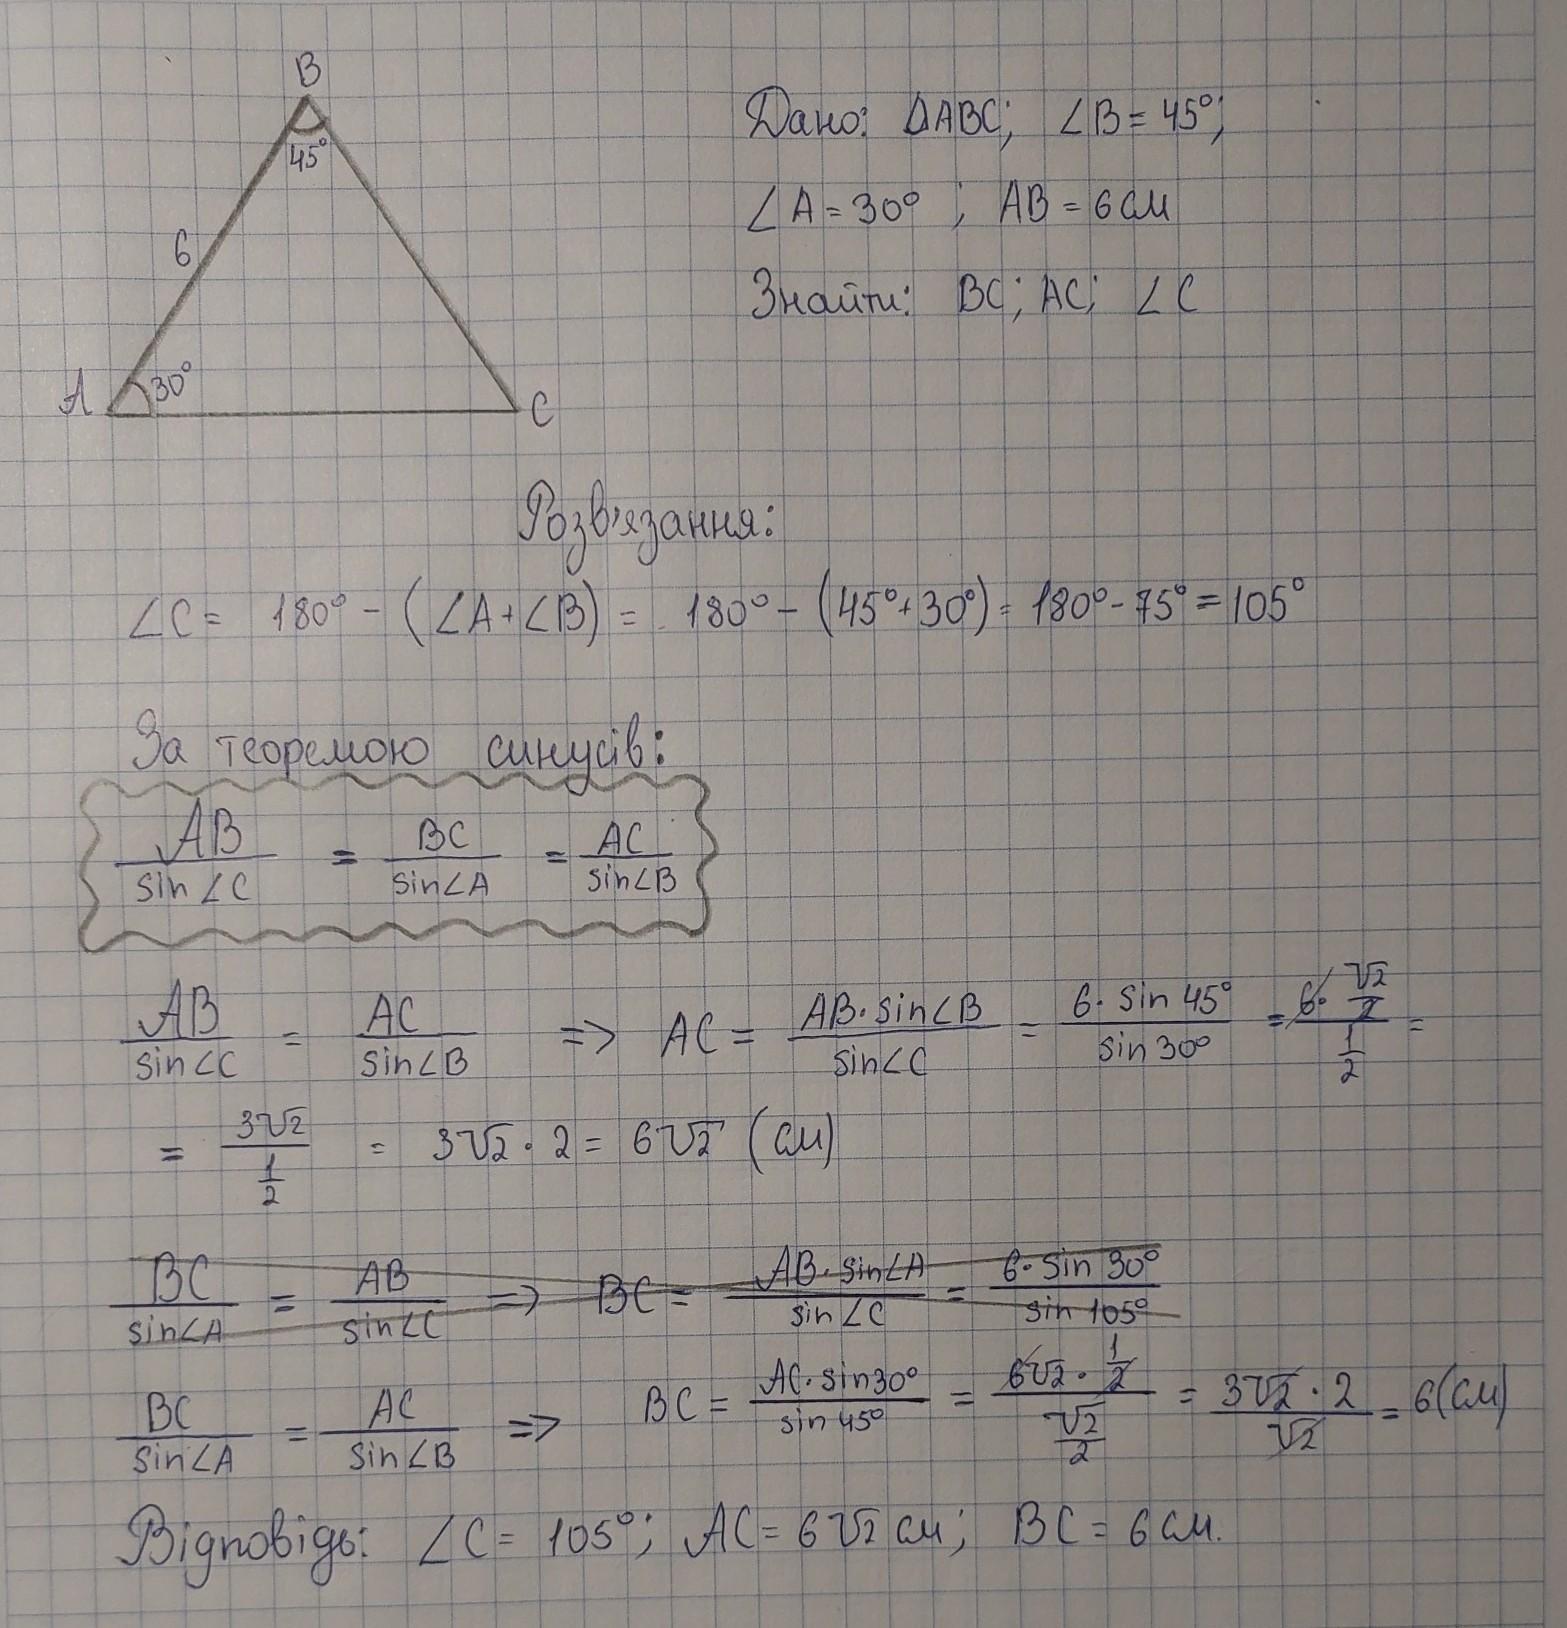 B
45°
6
A 30° C
Дано: ΔABC; ∠B = 45°;
∠A = 30° ; AB = 6 см
Знайти: BC; AC; ∠C
Розв'язання:
∠C = 180° - (∠A + ∠B) = 180° - (45° + 30°) = 180° - 75° = 105°
За теоремою синусів:
AB/sin∠C = BC/sin∠A = AC/sin∠B
AB/sin∠C = AC/sin∠B => AC = AB·sin∠B/sin∠C = 6·sin 45°/sin 30° = 6·√2/2/1/2 =
= 3√2/1/2 = 3√2 · 2 = 6√2 (см)
BC/sin∠A = AB/sin∠C => BC = AB·sin∠A/sin∠C = 6·sin 30°/sin 105°
BC/sin∠A = AC/sin∠B => BC = AC·sin30°/sin 45° = 6√2·1/2/√2/2 = 3√2·2/√2 = 6(см)
Відповідь: ∠C = 105°; AC = 6√2 см; BC = 6 см.